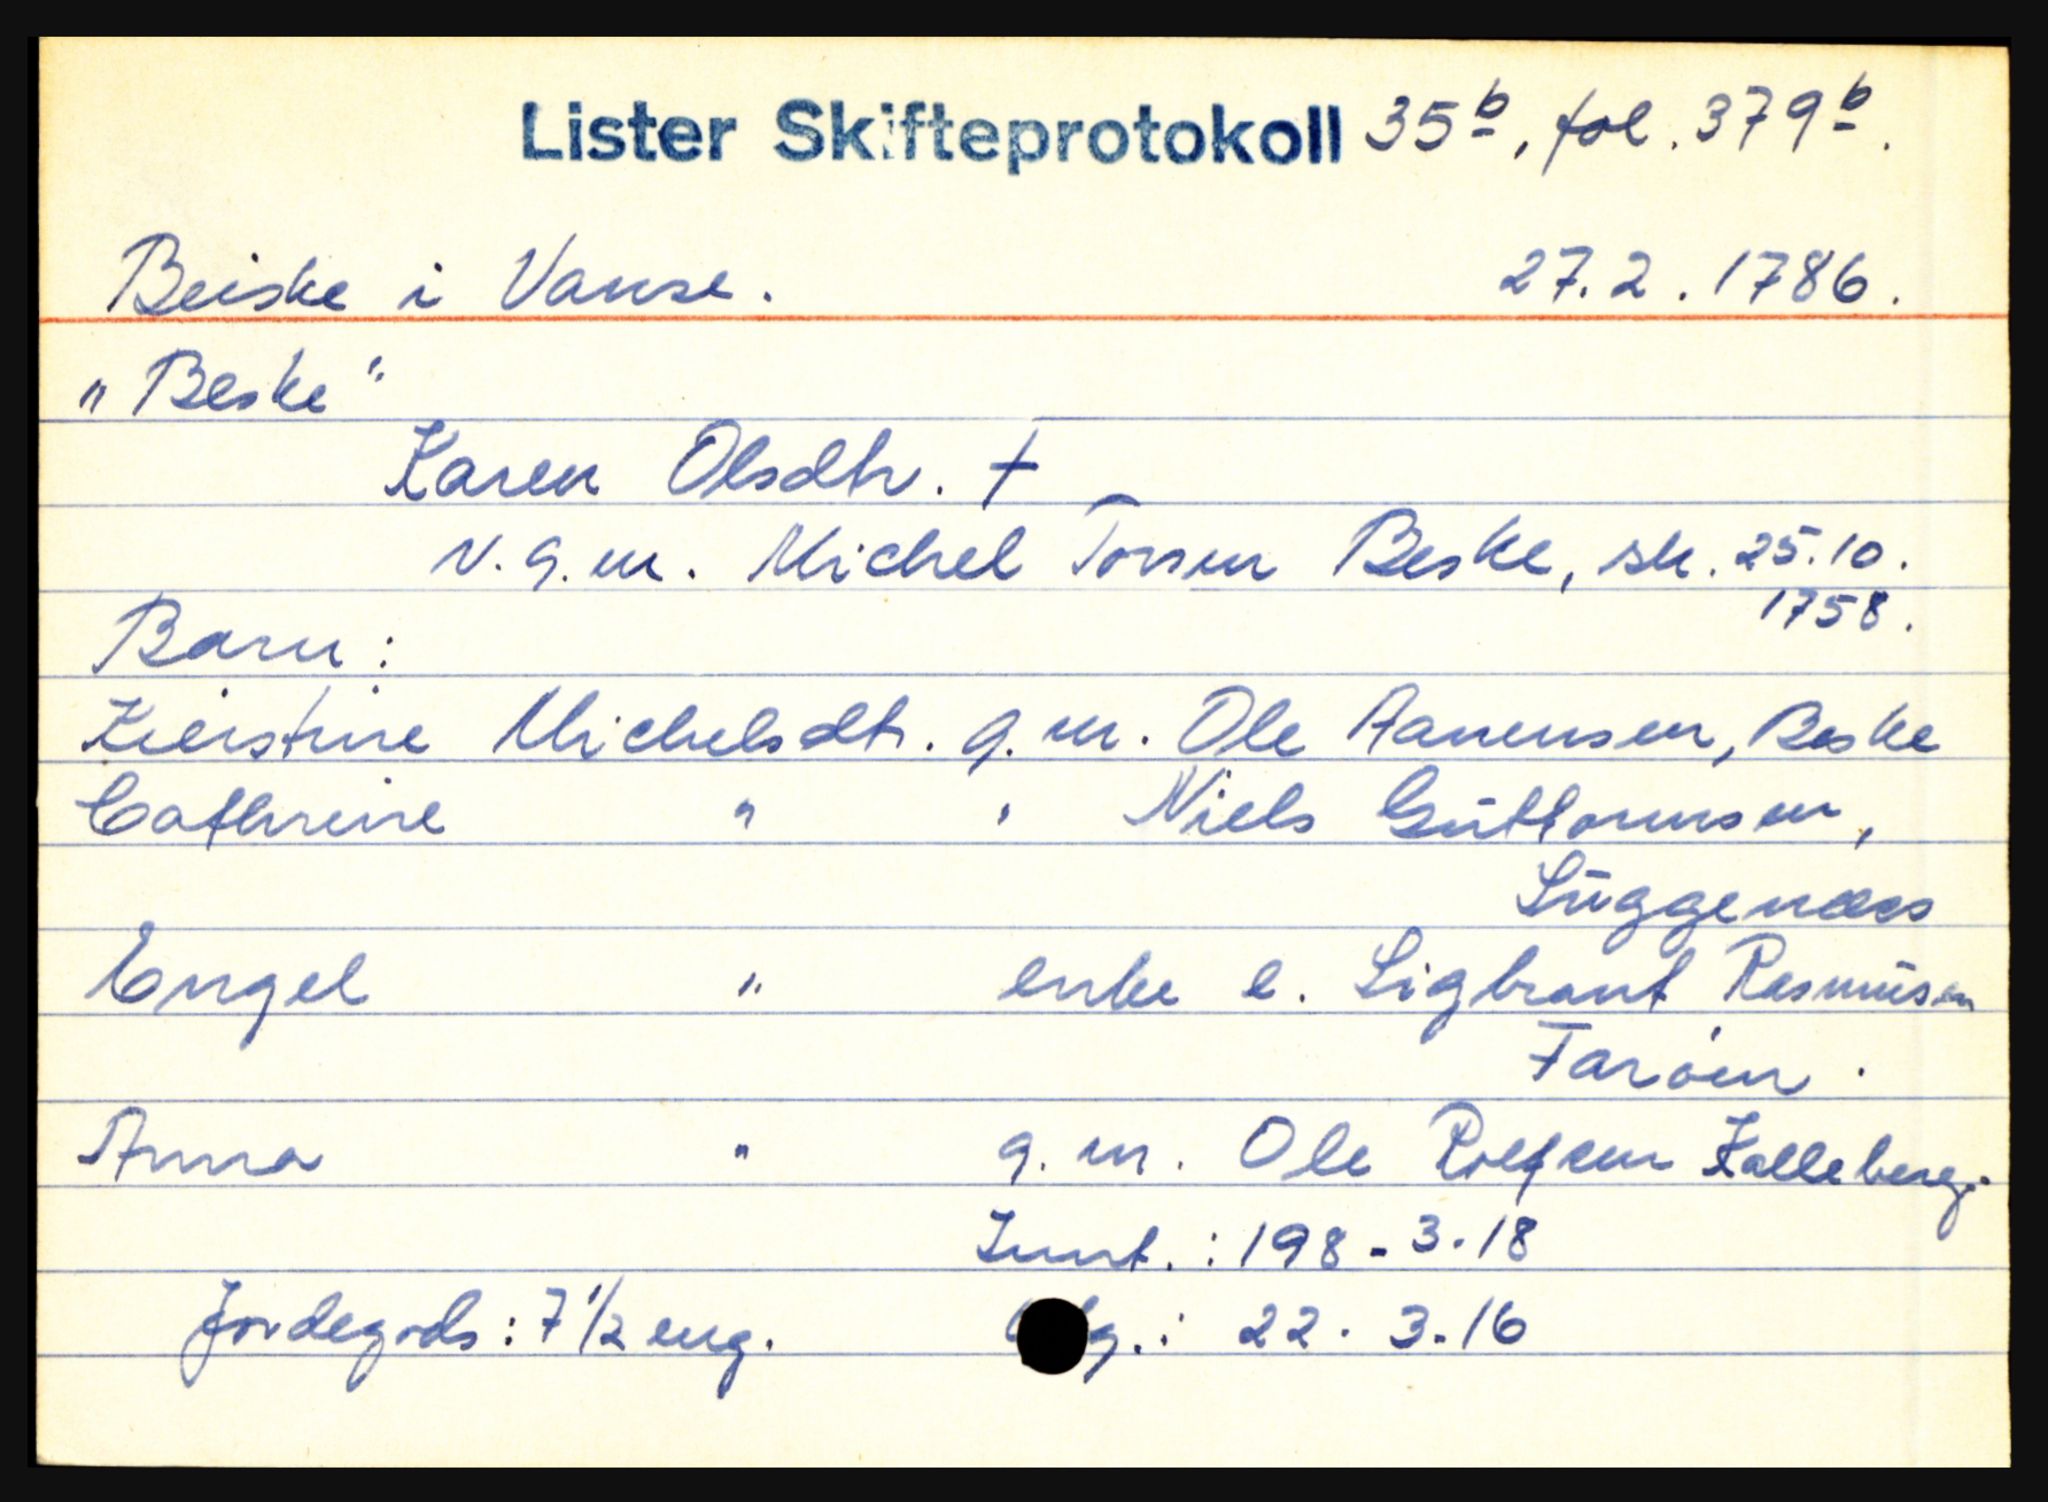 Lister Skifteprotokoll 35b, fol. 379b.
Beiske i Vanse. 27.2.1786.
"Beske"
Karen Olsdtr. †
v. g. m. Michel Torsen Beske, sk. 25.10.
1758.
Barn:
Kierstine Michelsdtr. g. m. Ole Aanensen, Beske
Cathrine " " Niels Guttormsen,
Luggenæs
Engel " enke e. Sigbrant Rasmusen
Farøen.
Anna " g. m. Ole Roefsen Kalleberg.
Innt.: 198-3-18
Jordegods: 7 1/2 eng. g.: 22-3-16